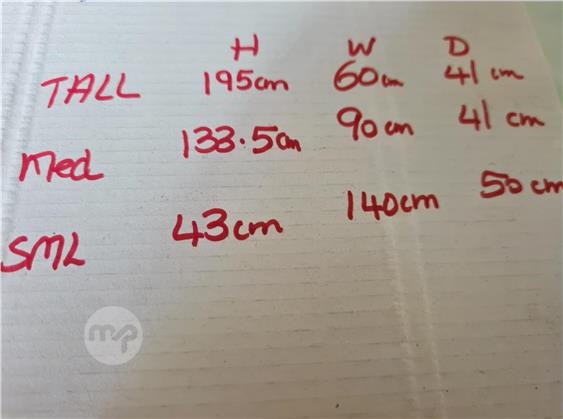 H W D
TALL 195cm 60cm 41 cm
Med 133.5cm 90cm 41 cm
SML 43cm 140cm 50cm
mp